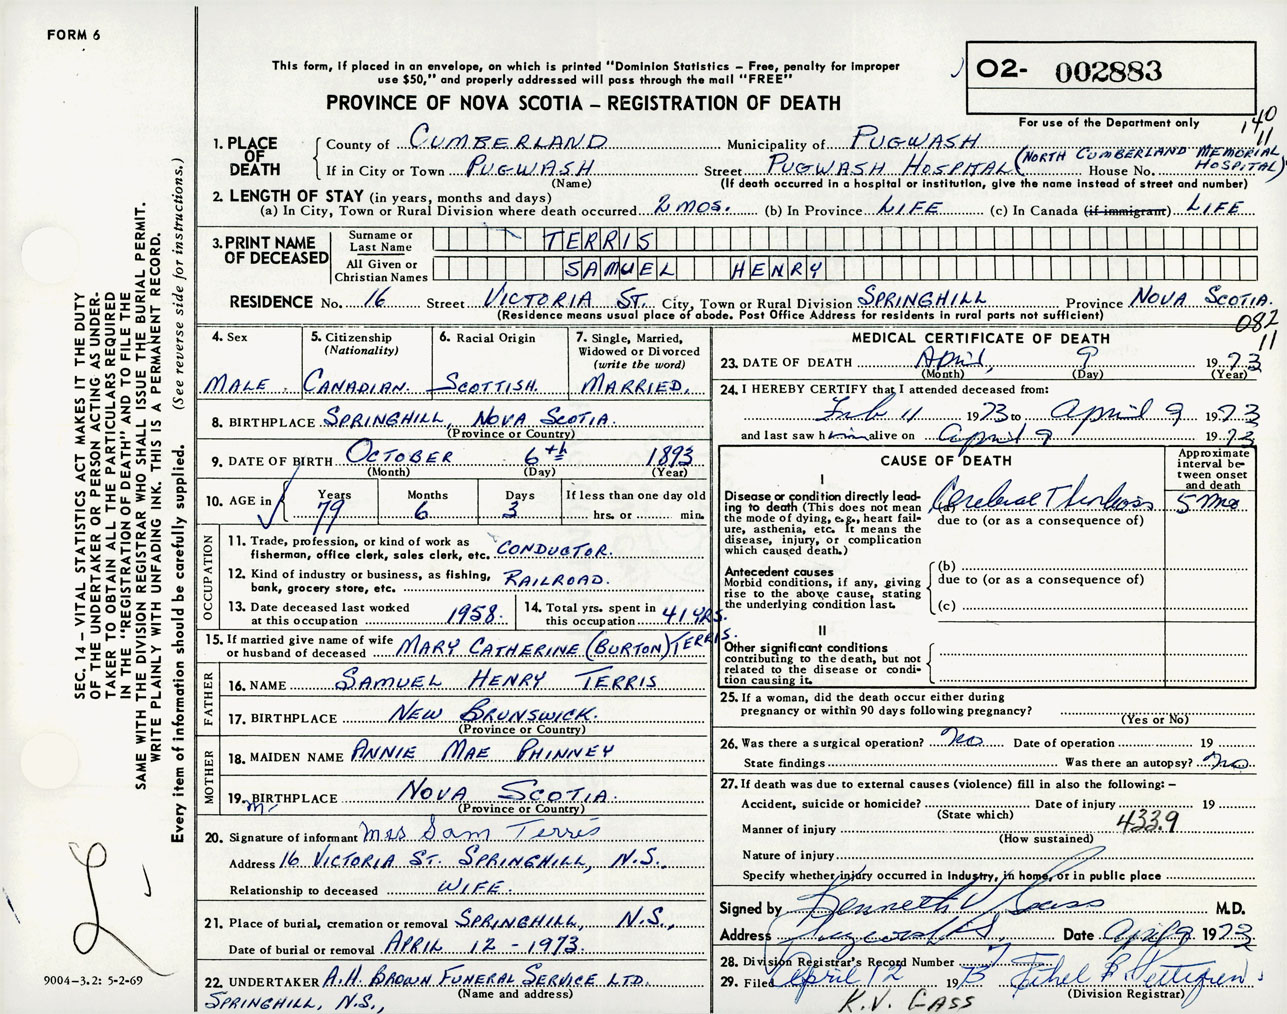 FORM 6
This form, if placed in an envelope, on which is printed "Dominion Statistics – Free, penalty for improper
use $50," and properly addressed will pass through the mail "FREE"
PROVINCE OF NOVA SCOTIA – REGISTRATION OF DEATH
O2- 002883
For use of the Department only
140
11
1. PLACE OF DEATH
County of CUMBERLAND Municipality of PUGWASH
If in City or Town PUGWASH Street PUGWASH HOSPITAL (NORTH CUMBERLAND MEMORIAL HOSPITAL) House No.
(Name) (If death occurred in a hospital or institution, give the name instead of street and number)
2. LENGTH OF STAY (in years, months and days)
(a) In City, Town or Rural Division where death occurred 2 MOS. (b) In Province LIFE (c) In Canada (if immigrant) LIFE
3. PRINT NAME OF DECEASED
Surname or Last Name TERRIS
All Given or Christian Names SAMUEL HENRY
RESIDENCE No. 16 Street VICTORIA ST. City, Town or Rural Division SPRINGHILL Province NOVA SCOTIA.
(Residence means usual place of abode. Post Office Address for residents in rural parts not sufficient)
082
11
4. Sex MALE.
5. Citizenship (Nationality) CANADIAN.
6. Racial Origin SCOTTISH.
7. Single, Married, Widowed or Divorced (write the word) MARRIED.
8. BIRTHPLACE SPRINGHILL, NOVA SCOTIA.
(Province or Country)
9. DATE OF BIRTH OCTOBER 6th 1893
(Month) (Day) (Year)
10. AGE in Years 79 Months 6 Days 3 If less than one day old hrs. or min.
OCCUPATION
11. Trade, profession, or kind of work as
fisherman, office clerk, sales clerk, etc. CONDUCTOR.
12. Kind of industry or business, as fishing,
bank, grocery store, etc. RAILROAD.
13. Date deceased last worked at this occupation 1958.
14. Total yrs. spent in this occupation 41 YRS.
15. If married give name of wife
or husband of deceased MARY CATHERINE (BURTON) TERRIS.
FATHER
16. NAME SAMUEL HENRY TERRIS
17. BIRTHPLACE NEW BRUNSWICK.
(Province or Country)
MOTHER
18. MAIDEN NAME ANNIE MAE PHINNEY
19. BIRTHPLACE NOVA SCOTIA.
(Province or Country)
20. Signature of informant Mrs Sam Terris
Address 16 VICTORIA ST. SPRINGHILL, N.S.
Relationship to deceased WIFE.
21. Place of burial, cremation or removal SPRINGHILL, N.S.,
Date of burial or removal APRIL 12 - 1973.
22. UNDERTAKER A.H. BROWN FUNERAL SERVICE LTD.
(Name and address)
SPRINGHILL, N.S.,
MEDICAL CERTIFICATE OF DEATH
23. DATE OF DEATH April, 9 1973
(Month) (Day) (Year)
24. I HEREBY CERTIFY that I attended deceased from:
Feb 11 1973 to April 9 1973
and last saw him alive on April 9 1973
CAUSE OF DEATH
Approximate interval between onset and death
I
Disease or condition directly lead-
ing to death (This does not mean
the mode of dying, e.g., heart fail-
ure, asthenia, etc. It means the
disease, injury, or complication
which caused death.)
(a) Cerebral Thrombosis 5 mo
due to (or as a consequence of)
Antecedent causes
Morbid conditions, if any, giving
rise to the above cause, stating
the underlying condition last.
(b)
due to (or as a consequence of)
(c)
II
Other significant conditions
contributing to the death, but not
related to the disease or condi-
tion causing it.
25. If a woman, did the death occur either during
pregnancy or within 90 days following pregnancy?
(Yes or No)
26. Was there a surgical operation? No Date of operation 19
State findings Was there an autopsy? No
27. If death was due to external causes (violence) fill in also the following: –
Accident, suicide or homicide? Date of injury 19
(State which)
433.9
Manner of injury
(How sustained)
Nature of injury
Specify whether injury occurred in industry, in home, or in public place
Signed by Kenneth V Gass M.D.
Address Pugwash N.S. Date April 9 1973
28. Division Registrar's Record Number 7
29. Filed April 12 1973
(Division Registrar)
K.V. GASS
SEC. 14 – VITAL STATISTICS ACT MAKES IT THE DUTY
OF THE UNDERTAKER OR PERSON ACTING AS UNDER-
TAKER TO OBTAIN ALL THE PARTICULARS REQUIRED
IN THE "REGISTRATION OF DEATH" AND TO FILE THE
SAME WITH THE DIVISION REGISTRAR WHO SHALL ISSUE THE BURIAL PERMIT.
WRITE PLAINLY WITH UNFADING INK. THIS IS A PERMANENT RECORD.
Every item of information should be carefully supplied. (See reverse side for instructions.)
9004-3.2: 5-2-69